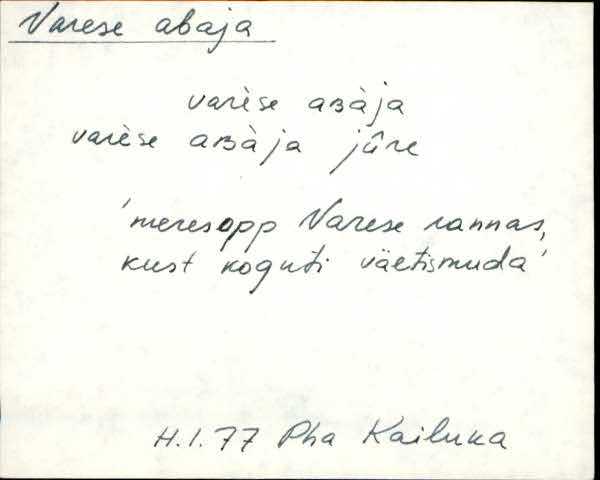 Varese abaja
varèse aʙàja
varèse aʙàja jûre
'meresopp Varese rannas,
kust koguti väetismuda'
H.I.77 Pha Kailuka